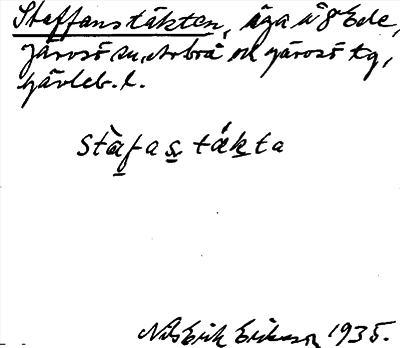 Staffanstäkten, äga å 8 Ede,
Järvsö sn, Arbrå och Järvsö tg,
Gävleb. l.
stàfas tákta
Nils Erik Eriksson 1935.